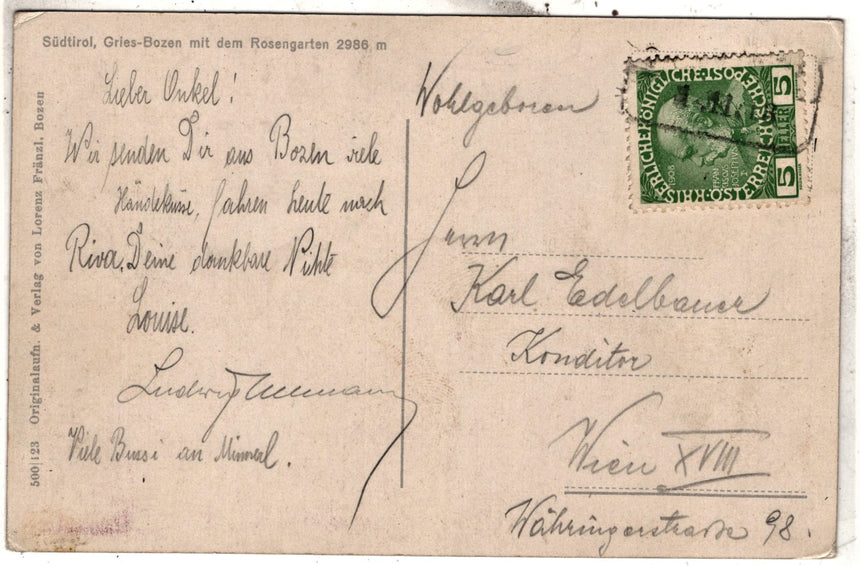 Südtirol, Gries-Bozen mit dem Rosengarten 2986 m
Lieber Onkel!
Wir senden Dir aus Bozen viele
Händeküsse, fahren heute nach
Riva. Deine dankbare Nichte
Louise.
Ludwig
Viele Bussi an
Wohlgeboren
Herrn
Karl Edelbauer
Konditor
Wien XVIII
Währingerstrasse 98.
500|123 Originalaufn. & Verlag von Lorenz Fränzl, Bozen
KAISERLICHE KÖNIGLICHE ÖSTERREICHISCHE POST
5
HELLER
5
1908